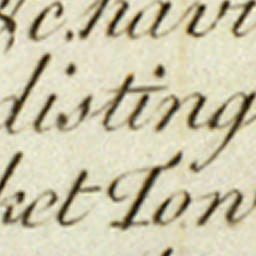 &c. havi
disting
ket Tow